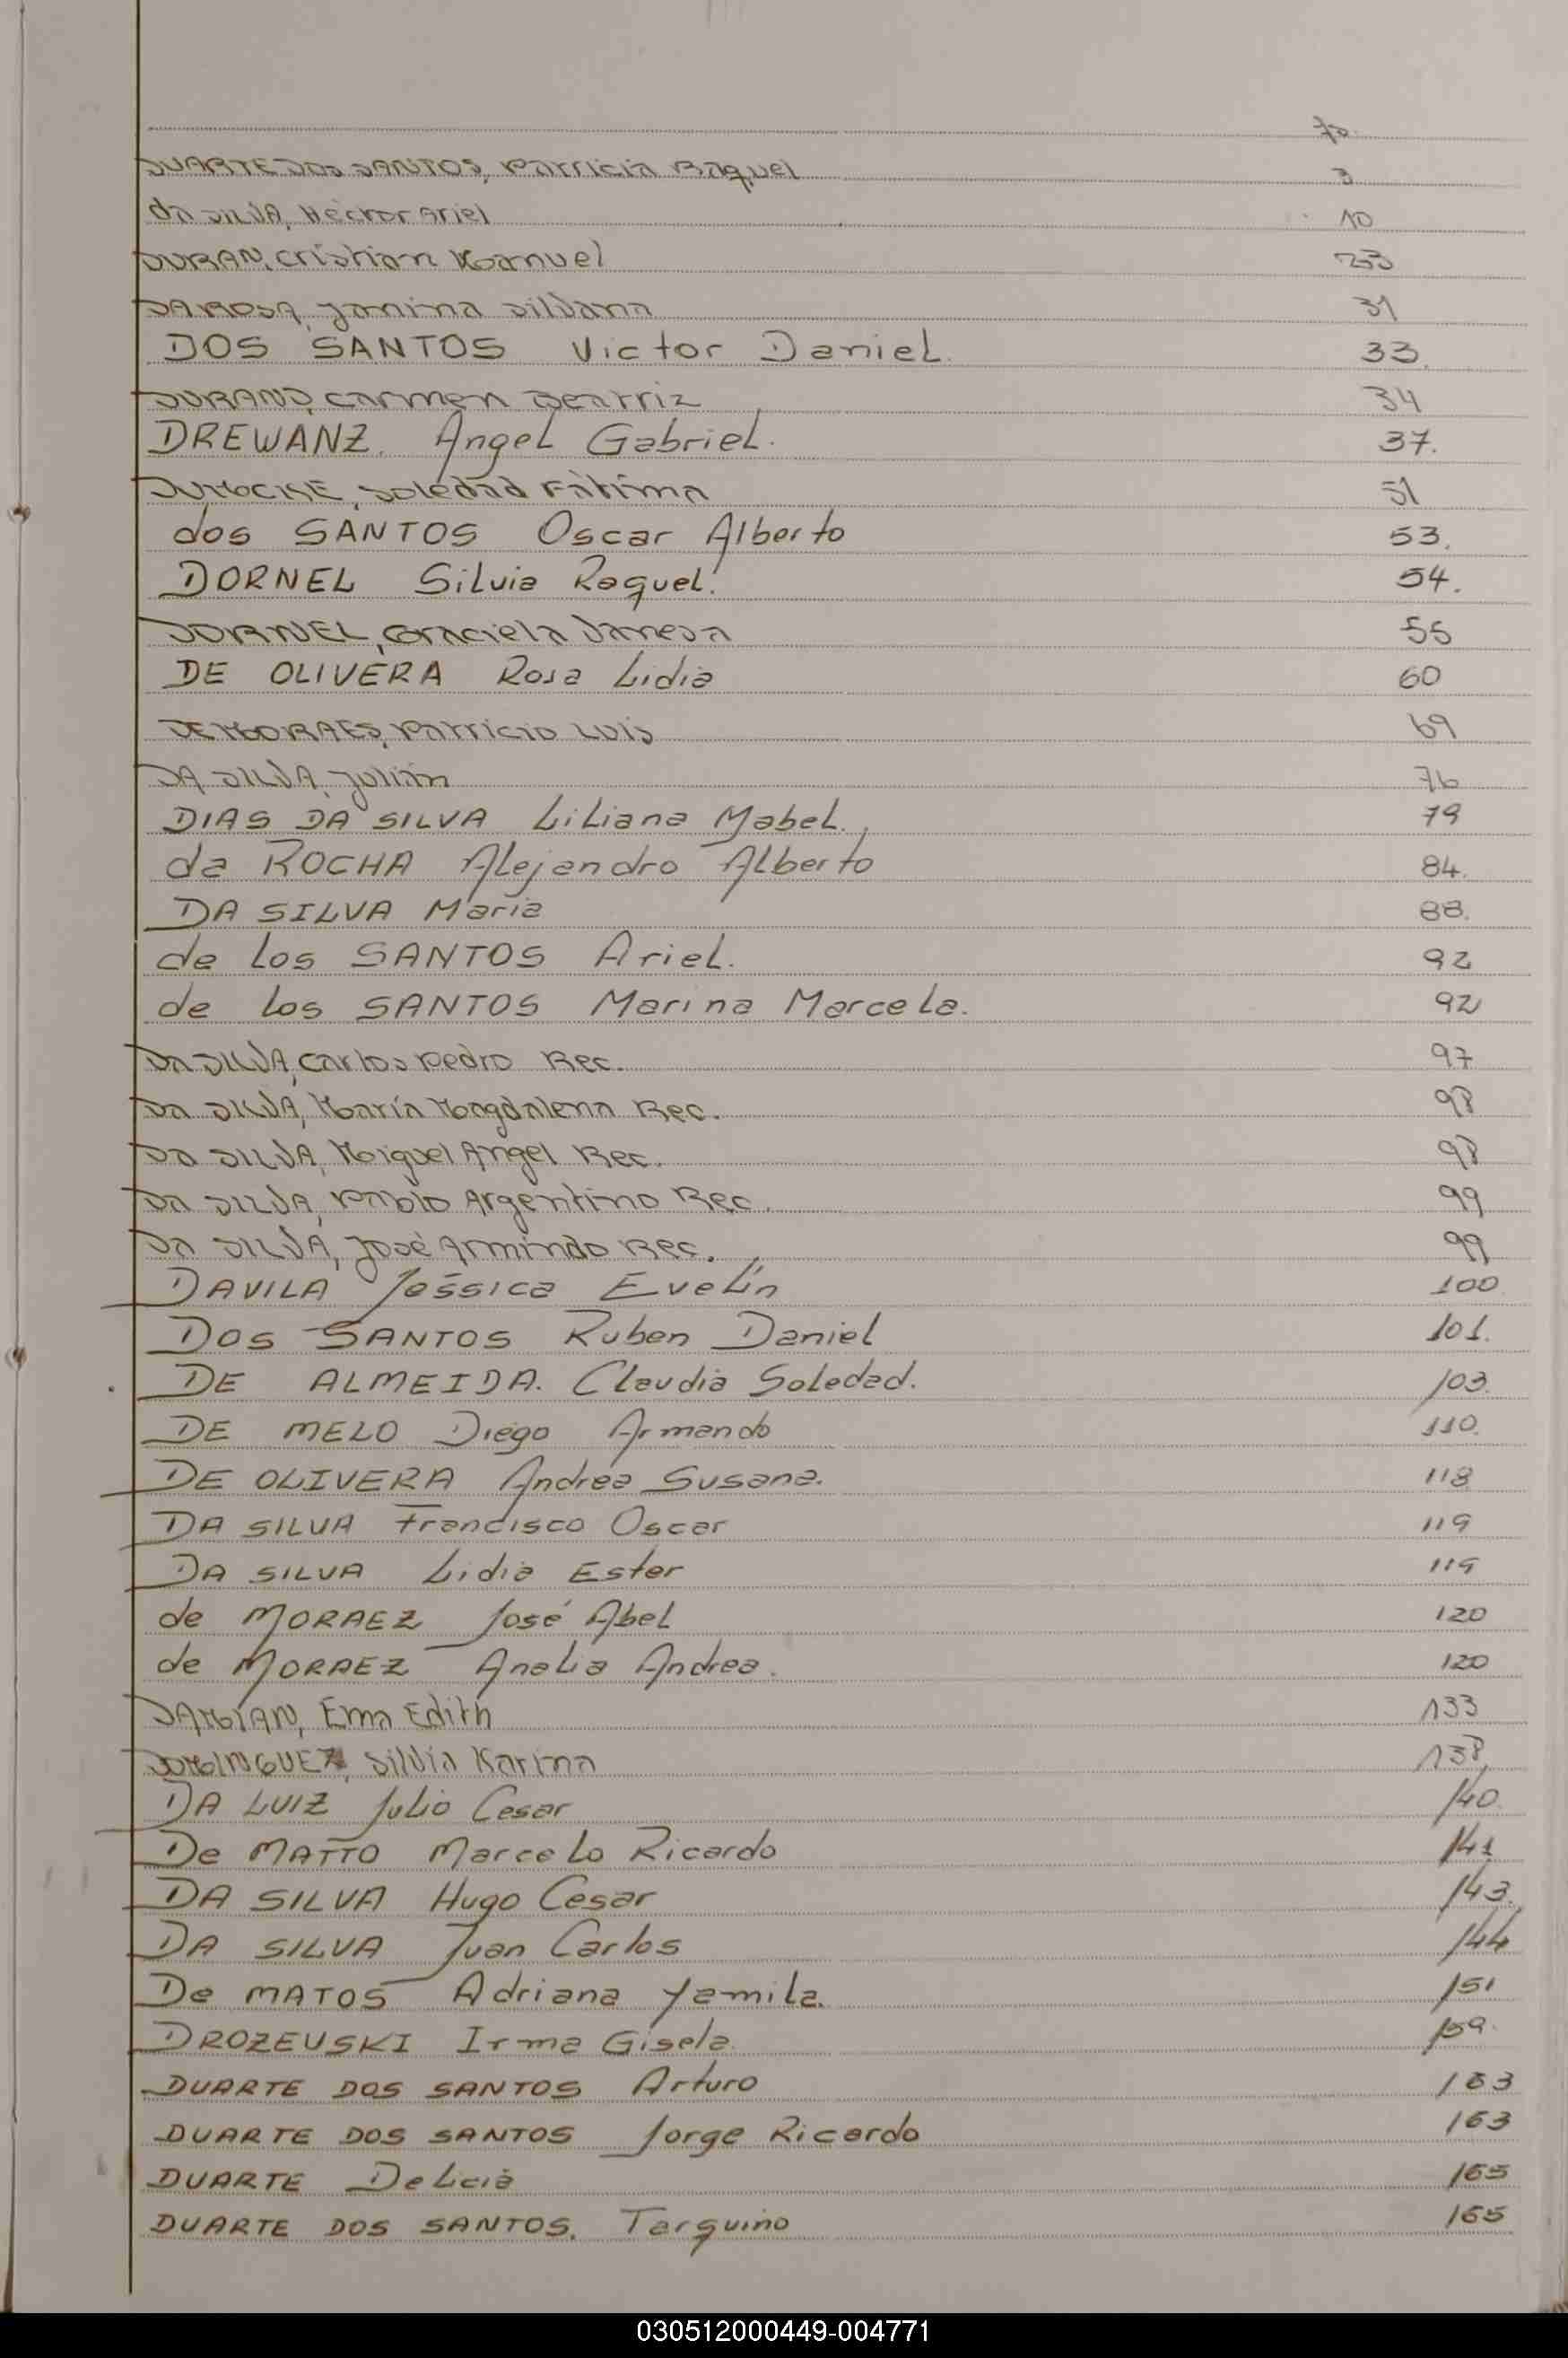 Fo
DUARTE DOS SANTOS, Patricia Raquel 3
da SILVA, Héctor Ariel 10
DURAN, Cristian Manuel 23
DA ROSA, Janina Silvana 31
DOS SANTOS Victor Daniel. 33.
DURAND, Carmen Beatriz 34
DREWANZ. Angel Gabriel. 37.
Soledad Fátima 51
dos SANTOS Oscar Alberto 53.
DORNEL Silvia Raquel. 54.
DORNEL, Graciela Vanesa 55
DE OLIVERA Rosa Lidia 60
DE MORAES, Patricio Luis 69
DA SILVA, Julián 76
DIAS DA SILVA Liliana Mabel. 79
da ROCHA Alejandro Alberto 84.
DA SILVA Maria 88.
de los SANTOS Ariel. 92
de los SANTOS Marina Marcela. 92
Da SILVA, Carlos Pedro Rec. 97
Da SILVA, María Magdalena Rec. 98
Da SILVA, Miguel Angel Rec. 98
Da SILVA, Pablo Argentino Rec. 99
Da SILVA, José Armindo Rec. 99
DAVILA Jessica Evelín 100
DOS SANTOS Ruben Daniel 101.
DE ALMEIDA. Claudia Soledad. 103.
DE MELO Diego Armando 110.
DE OLIVERA Andrea Susana. 118
DA SILVA Francisco Oscar 119
DA SILVA Lidia Ester 119
de MORAEZ José Abel 120
de MORAEZ Analia Andrea. 120
DAMIAN, Ema Edith 133
DOMINGUEZ, Silvia Karina 138
DA LUIZ Julio Cesar 140.
De MATTO Marcelo Ricardo 141
DA SILVA Hugo Cesar 143.
DA SILVA Juan Carlos 144
De MATOS Adriana Yamila. 151
DROZEUSKI Irma Gisela. 159.
DUARTE DOS SANTOS Arturo 163
DUARTE DOS SANTOS Jorge Ricardo 163
DUARTE Delicia 165
DUARTE DOS SANTOS. Tarquino 165
030512000449-004771